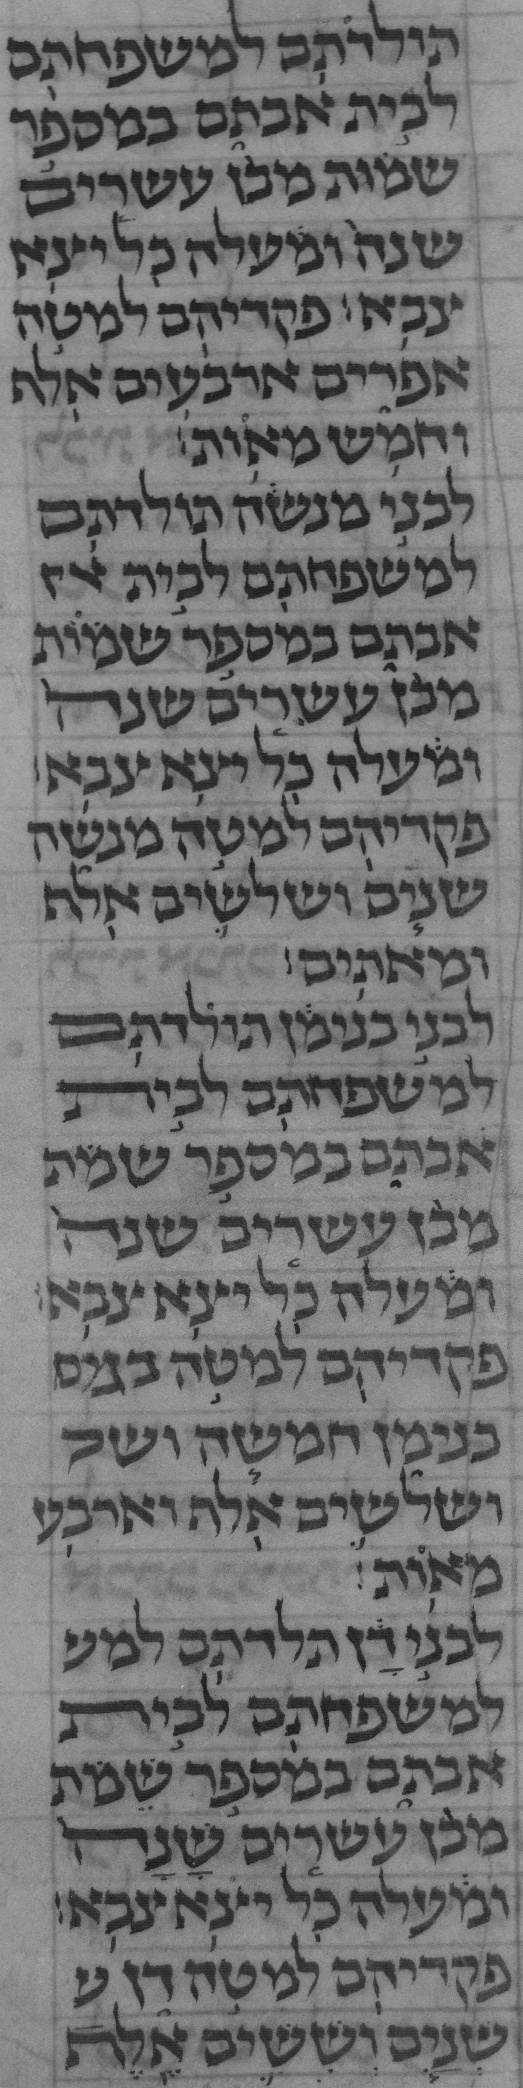 תולדתם למשפחתם
לבית אבתם במספר
שמות מבן עשרים
שנה ומעלה כל יצא
צבא׃ פקדיהם למטה
אפרים ארבעים אלף
וחמש מאות׃
לבני מנשה תולדתם
למשפחתם לבית
אבתם במספר שמות
מבן עשרים שנה
ומעלה כל יצא צבא׃
פקדיהם למטה מנשה
שנים ושלשים אלף
ומאתים׃
לבני בנימן תולדתם
למשפחתם לבית
אבתם במספר שמת
מבן עשרים שנה
ומעלה כל יצא צבא׃
פקדיהם למטה
בנימן חמשה ושל
ושלשים אלף וארבע
מאות׃
לבני דן תלדתם למש
למשפחתם לבית
אבתם במספר שמת
מבן עשרים שנה
ומעלה כל יצא צבא׃
פקדיהם למטה דן ש
שנים וששים אלף